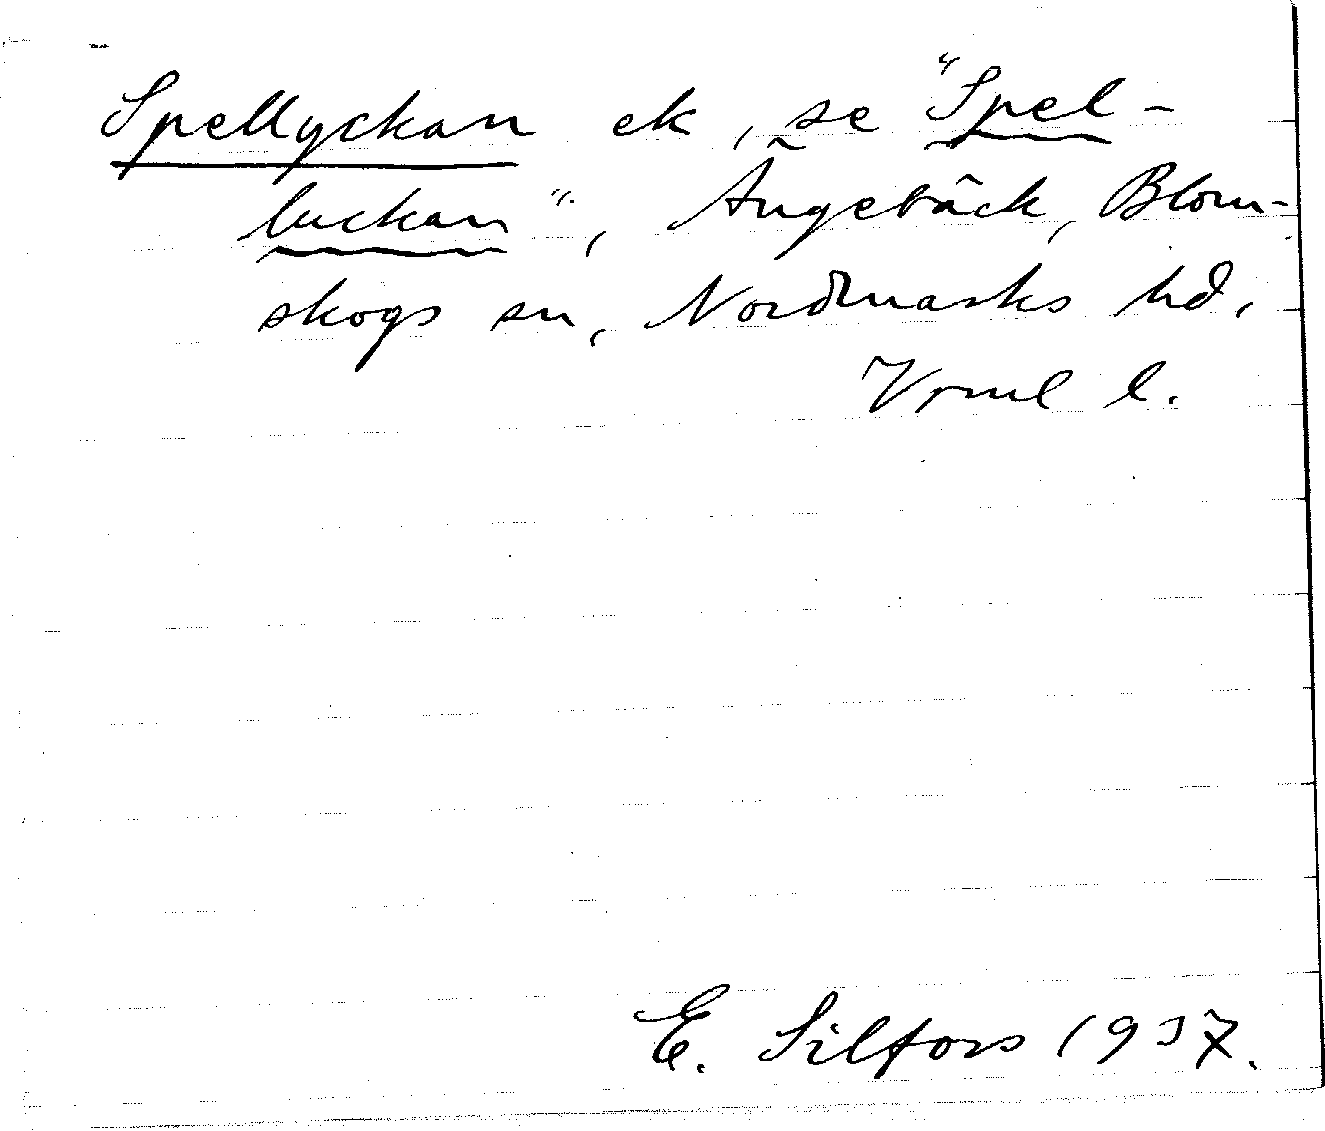 Spellyckan ek, se "Spel-
luckan", Ängebäck, Blom-
skogs sn, Nordmarks hd,
Vrml l.
E. Silfors 1937.